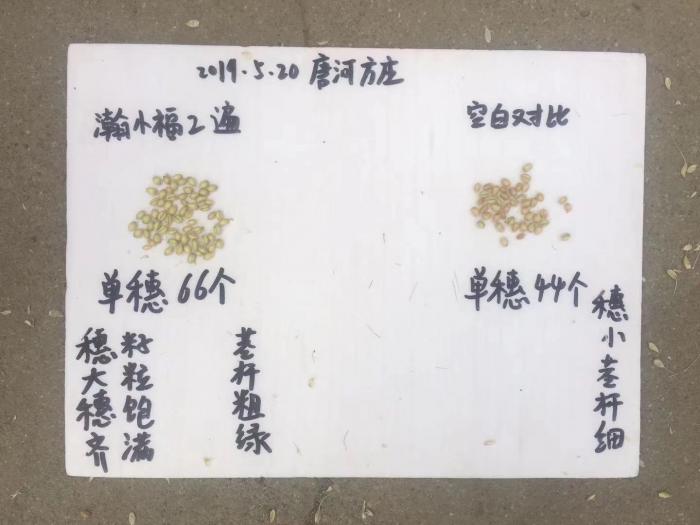 2019.5.20 唐河方庄
瀚小福2遍
空白对比
单穗66个
单穗44个
穗大穗齐
籽粒饱满
茎杆粗绿
穗小茎杆细